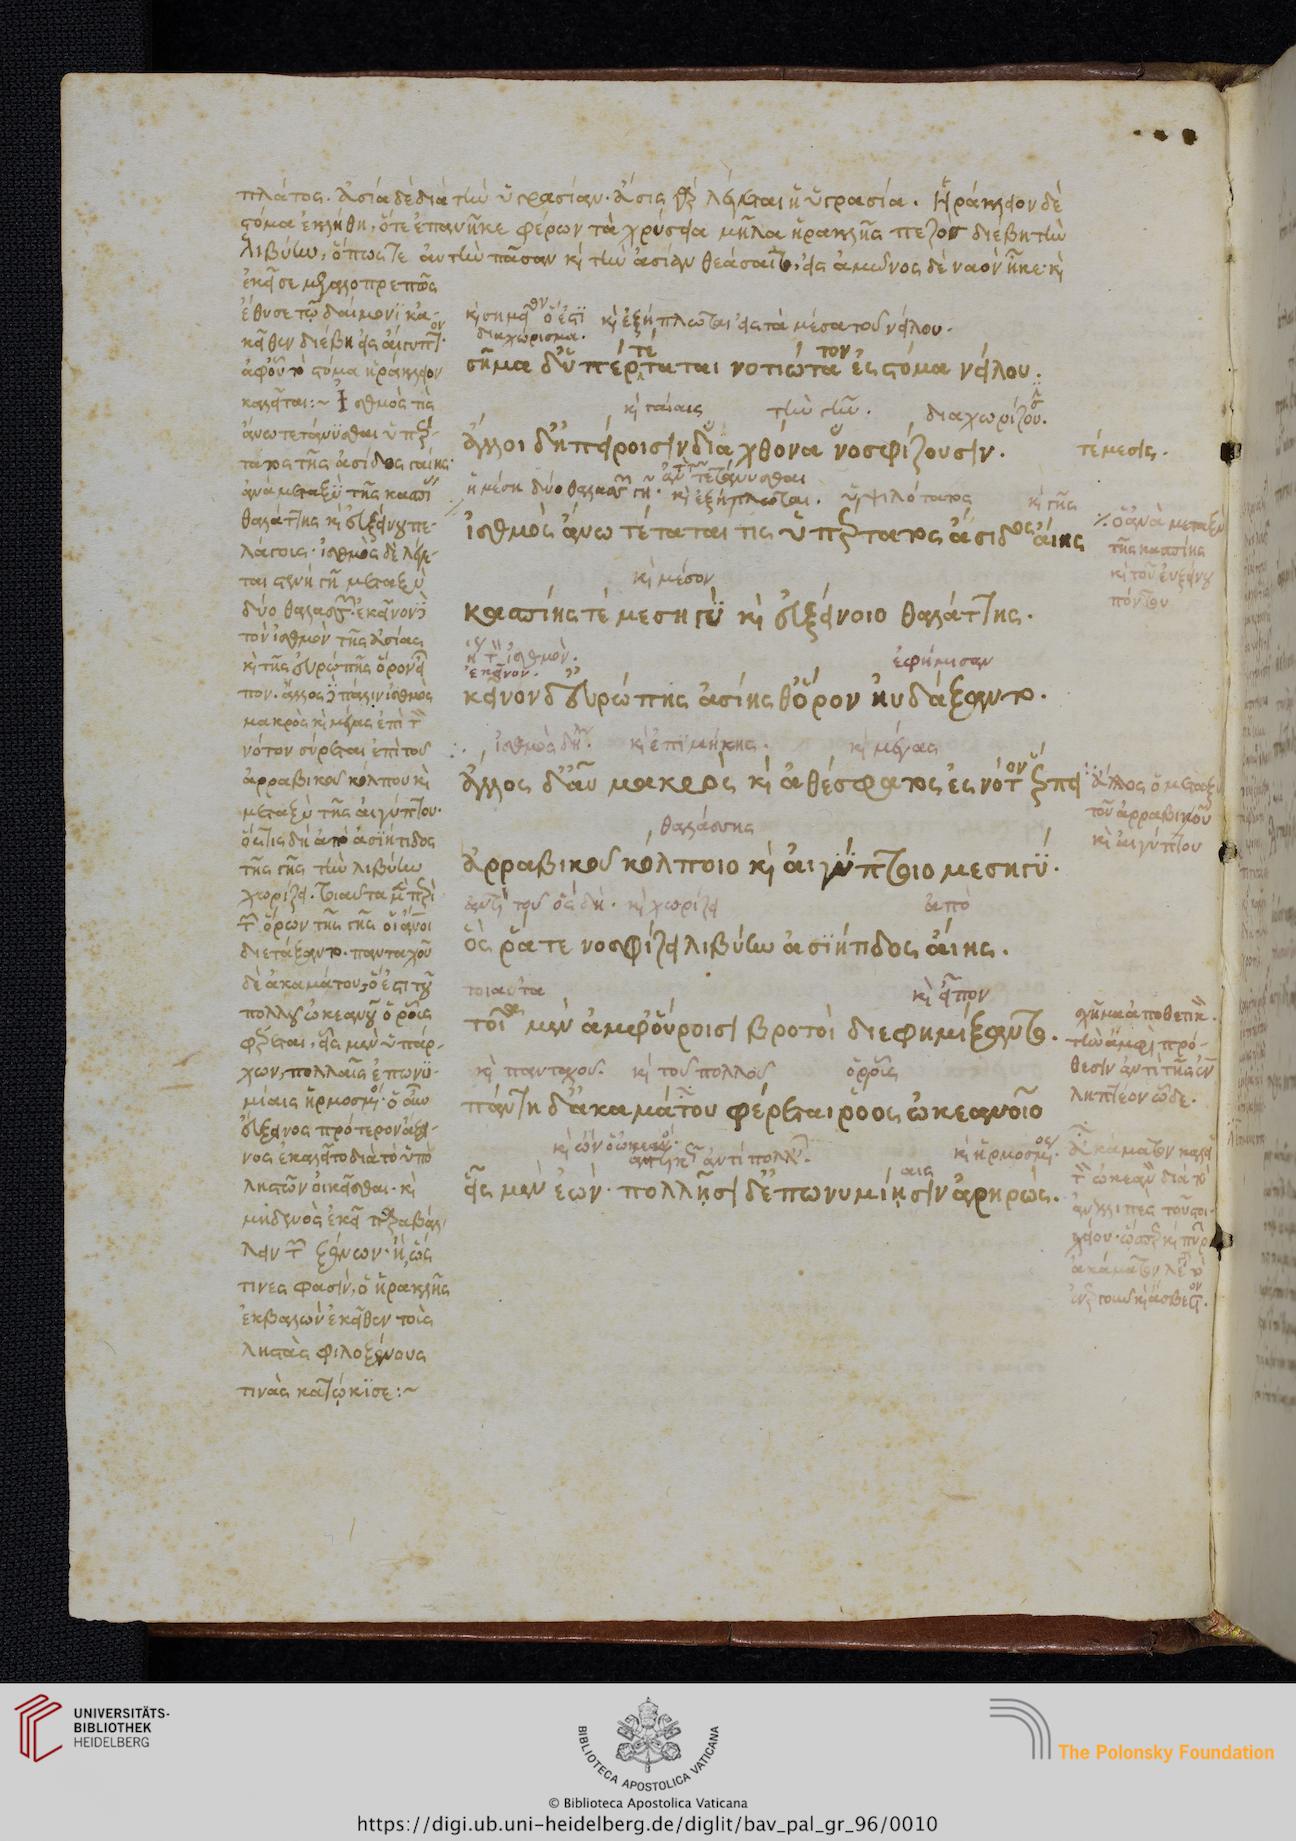 πλάτος. Ἀσία δὲ διὰ τὴν ὑγρασίαν. ἄσις γὰρ λέγεται ἡ ὑγρασία. Ἡράκλειον δὲ
στόμα ἐκλήθη, ὅτε ἐπανῆκε φέρων τὰ χρύσεια μῆλα ἡρακλῆς πεζος διέβη τὴν
λιβύην, ὅπως τε αὐτὴν πᾶσαν καὶ τὴν ἀσίαν θεάσαιτο, εἰς ἀμωνος δὲ ναὸν ἧκε· καὶ
ἐκεῖσε μεγαλοπρεπῶς
ἔθυσε τῷ δαίμονϊ κἀ-
κεῖθεν διέβη εἰς αἴγυπτον·
ἀφ' οὗ τὸ στόμα ἡράκλειον
καλεῖται:~ Ἰσθμός τις
ἄνω τετάνϋσθαι ὑπερ-
τατος τῆς ἀσίδος γαίης·
ἀνὰ μεταξὺ τῆς κασπί
θαλάττης καὶ εὐξείνου πε-
λάγους· ἰσθμὸς δὲ λέγε-
ται στενὴ γῆ μεταξὺ
δύο θαλασσῶν· ἐκεῖνον
τὸν ἰσθμὸν τῆς ἀσίας
καὶ τῆς εὐρώπης ὅρον εἶ
πον. ἄλλος πάλιν ἰσθμὸς
μακρὸς καὶ μέγας ἐπὶ τὸν
νότον σύρεται ἐπὶ τοῦ
ἀρραβικοῦ κόλπου καὶ
μεταξὺ τῆς αἰγύπτου·
ὅστις δὴ ἀπὸ ἀσϊήτιδος
τῆς γῆς τὴν λιβύην
χωρίζει. τοιαῦτα μὲν περὶ
τῶν ὅρων τῆς γῆς οἱ ἄνοι
διετάξαντο. πανταχοῦ
δὲ ἀκαμάτου, ὅ ἐστι τοῦ
πολλοῦ ὠκεανοῦ ὁ ῥοῦς
φέρεται, εἷς μὲν ὑπάρ-
χων, πολλαῖς ἐπωνϋ-
μίαις ἡρμοσμένος· ὁ οὖν
εὔξεινος πρότερον ἄξει-
νος ἐκαλεῖτο διὰ τὸ ὑπὸ
ληστῶν οἰκεῖσθαι· καὶ
μηδένα ἐκεῖ παραβάλ-
λειν τῶν ξένων· ἢ, ὥς
τινες φασὶν, ὁ ἡρακλῆς
ἐκβαλὼν ἐκεῖθεν τοὺς
ληστὰς φιλοξένους
τινὰς κατῴκϊσε:~
καὶ σημεῖον ὅ ἐστϊ καὶ ἐξήπλωται εἰς τὰ μέσα τοῦ νείλου.
διαχώρισμα.
σῆμα δ' ὑπέρτεταται νοτιώτατον ἐς στόμα νείλου.
καὶ γαίαις τὴν γῆν. διαχωρίζουσι.
ἄλλοι δ' ἠπείροισιν διὰ χθόνα νοσφίζουσιν.
τέμεσίς.
ἡ μέση δύο θαλασσῶν γῆ· καὶ ἐξήπλωται. ὑψιλότατος καὶ γῆς
ἰσθμὸς ἄνω τέταται τις ὑπέρτατος ἀσιδος αἴης
ὁ ἀνὰ μεταξὺ
τῆς κασπίης
καὶ τοῦ εὐξείνου
πόντου
καὶ μέσον
κασπίης τὲ μεσηγὺ καὶ εὐξείνοιο θαλάττης.
τὸν ἰσθμὸν.
ἐκεῖνον. ἐφήμισαν
κεῖνον δ' εὐρώπης ἀσίης θ' ὅρον ηυδάξαντο.
ἰσθμὸς δὴ. καὶ ἐπϊμήκης. καὶ μέγας
ἄλλος δ' αὖ μακρὸς καὶ ἀθέσφατος ἐς νότον ἕρπει
ἄλλος ὁ μεταξὺ
τοῦ ἀρραβικοῦ
καὶ αἰγύπτου
θαλάσσης
ἀρραβικοῦ κόλποιο καὶ αἰγύπτοιο μεσηγϋ.
ἀντὶ τοῦ ὅς δή. καὶ χωρίζει ἀπὸ
ὅς ῥά τε νοσφίζει λιβύην ἀσϊήτιδος αἴης.
τοιαῦτα καὶ εἶπον
τοῖα μὲν ἀμφ' οὔροισι βροτοὶ διεφημίξαντο.
σχῆμα ἀποθετικὸν.
τὴν ἀμφὶ πρό-
θεσιν ἀντὶ τῆς ἐν
ληπτέον ὧδε.
καὶ πανταχοῦ. καὶ τοῦ πολλοῦ ὁ ῥοῦς
πάντη δ' ἀκαμάτου φέρεται ῥόος ὠκεανοῖο
καὶ ὢν ὁ ὠκεανός. ἀντὶ πολλ. καὶ ἡρμοσμένος
εἷς μὲν ἐὼν· πολλῇσι δ' ἐπωνυμίῃσιν ἀρηρώς.
ἀκάματον καλεῖ
τὸν ὠκεανὸν διὰ τὸ
ἀνελλιπὲς τοῦ στοι-
χείου· ὥσπερ καὶ πῦρ
ἀκάματον λέγει τὸ
καὶ ἄσβεστον.
UNIVERSITÄTS-
BIBLIOTHEK
HEIDELBERG
BIBLIOTECA APOSTOLICA VATICANA
The Polonsky Foundation
© Biblioteca Apostolica Vaticana
https://digi.ub.uni-heidelberg.de/diglit/bav_pal_gr_96/0010